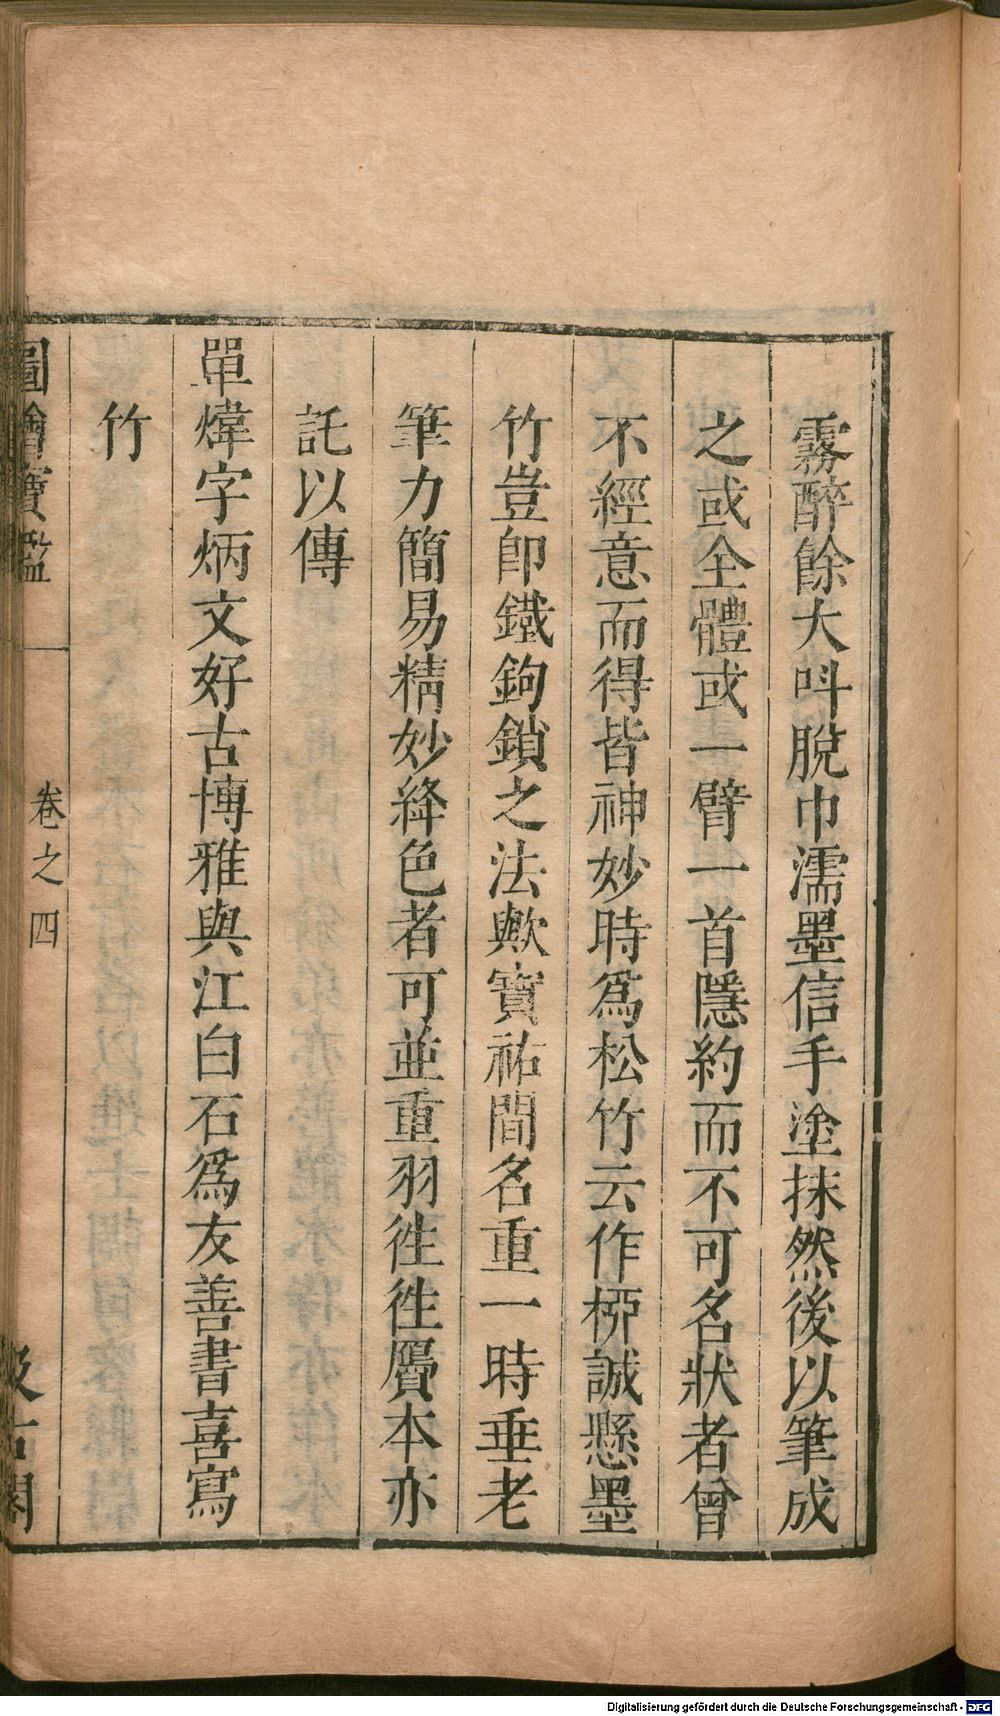 霧醉餘大呌脫巾濡墨信手塗抹然後以筆成
之或全體或一臂一首隱約而不可名狀者曾
不經意而得皆神妙時爲松竹云作桺誠懸墨
竹豈卽鐵鉤鎖之法歟寶祐間名重一時垂老
筆力簡易精妙絳色者可並重羽徃徃贋本亦
託以傳
單煒字炳文好古博雅與江白石爲友善書喜寫
竹
圖繪寶鑑
卷之四
汲古閣
Digitalisierung gefördert durch die Deutsche Forschungsgemeinschaft - DFG